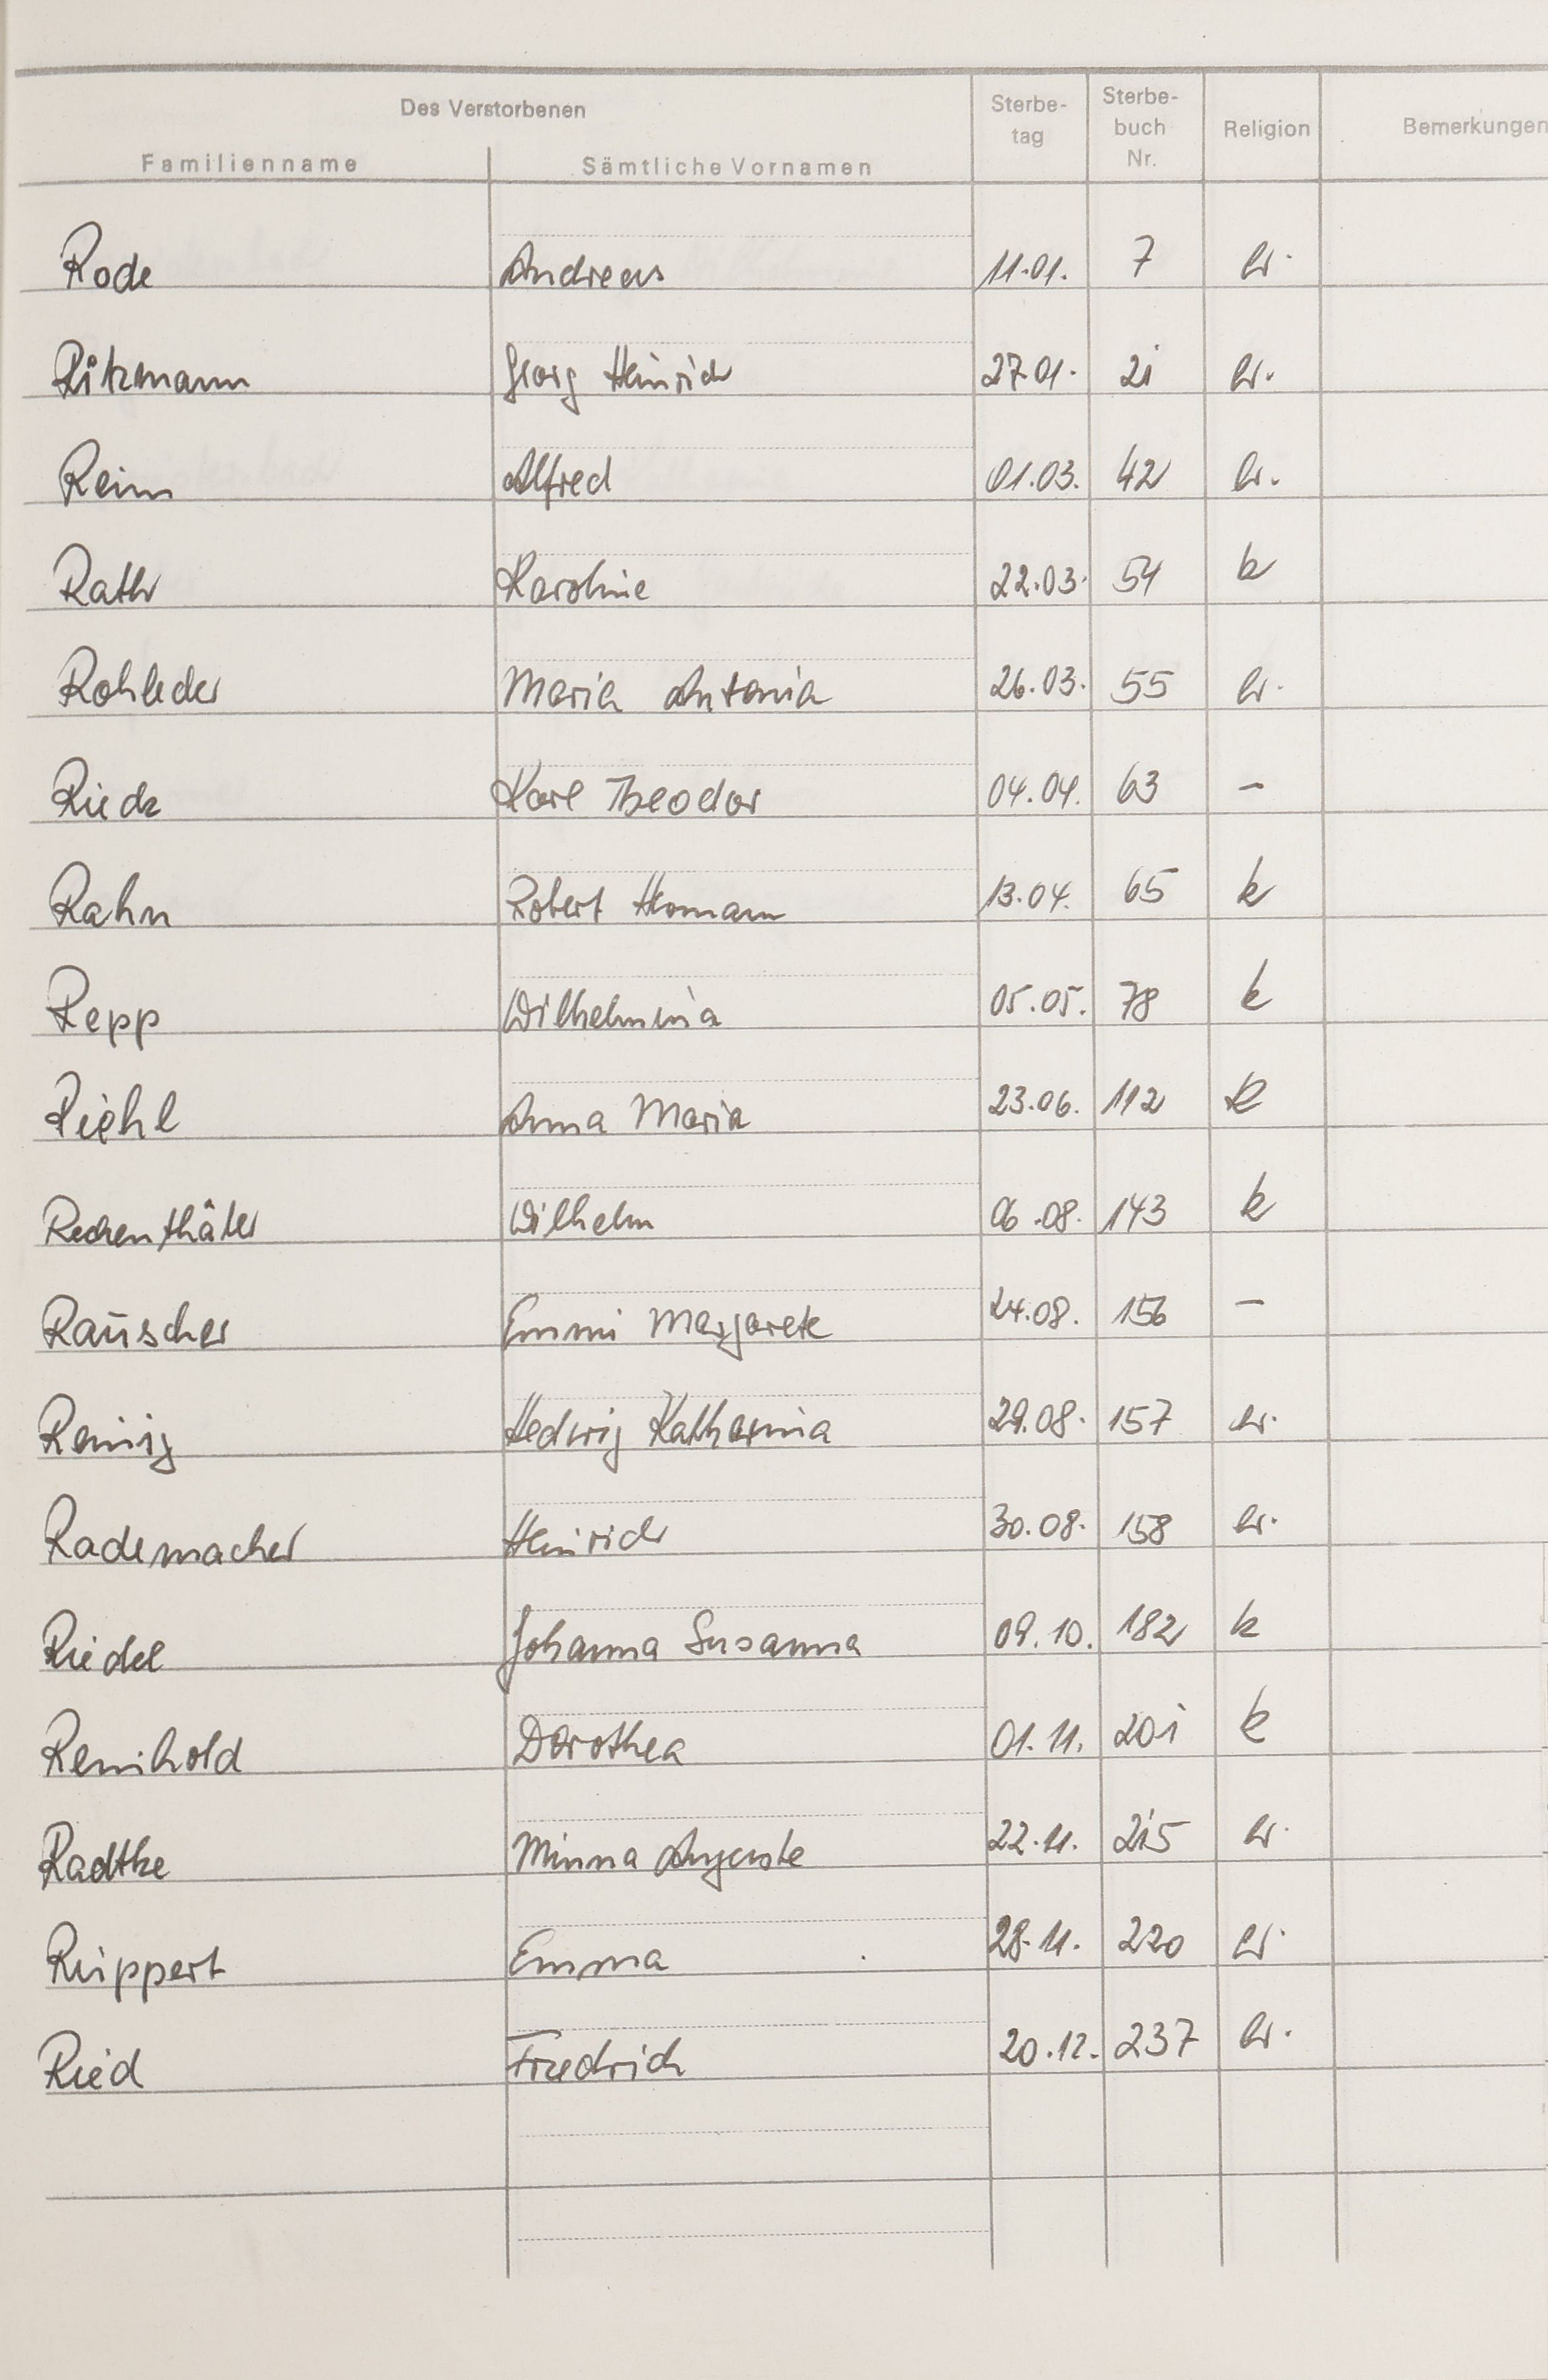 Des Verstorbenen Sterbe- Sterbe-
tag buch Religion Bemerkungen
Familienname Sämtliche Vornamen Nr.
Rode Andreas 11.01. 7 ev.
Ritzmann Georg Heinrich 27.01. 21 ev.
Reim Alfred 01.03. 42 ev.
Rath Karoline 22.03. 54 k
Rohleder Maria Antonia 26.03. 55 ev.
Rieck Karl Theodor 04.04. 63 –
Rahn Robert Hermann 13.04. 65 k
Repp Wilhelmina 05.05. 78 k
Riehl Anna Maria 23.06. 112 k
Rechenthäler Wilhelm 06.08. 143 k
Rauscher Emmi Margarete 24.08. 156 –
Reinig Hedwig Katharina 29.08. 157 ev.
Rademacher Heinrich 30.08. 158 ev.
Riedel Johanna Susanna 09.10. 182 k
Reinhold Dorothea 01.11. 201 k
Radtke Minna Auguste 22.11. 215 ev.
Ruppert Emma 28.11. 220 ev.
Ried Friedrich 20.12. 237 ev.